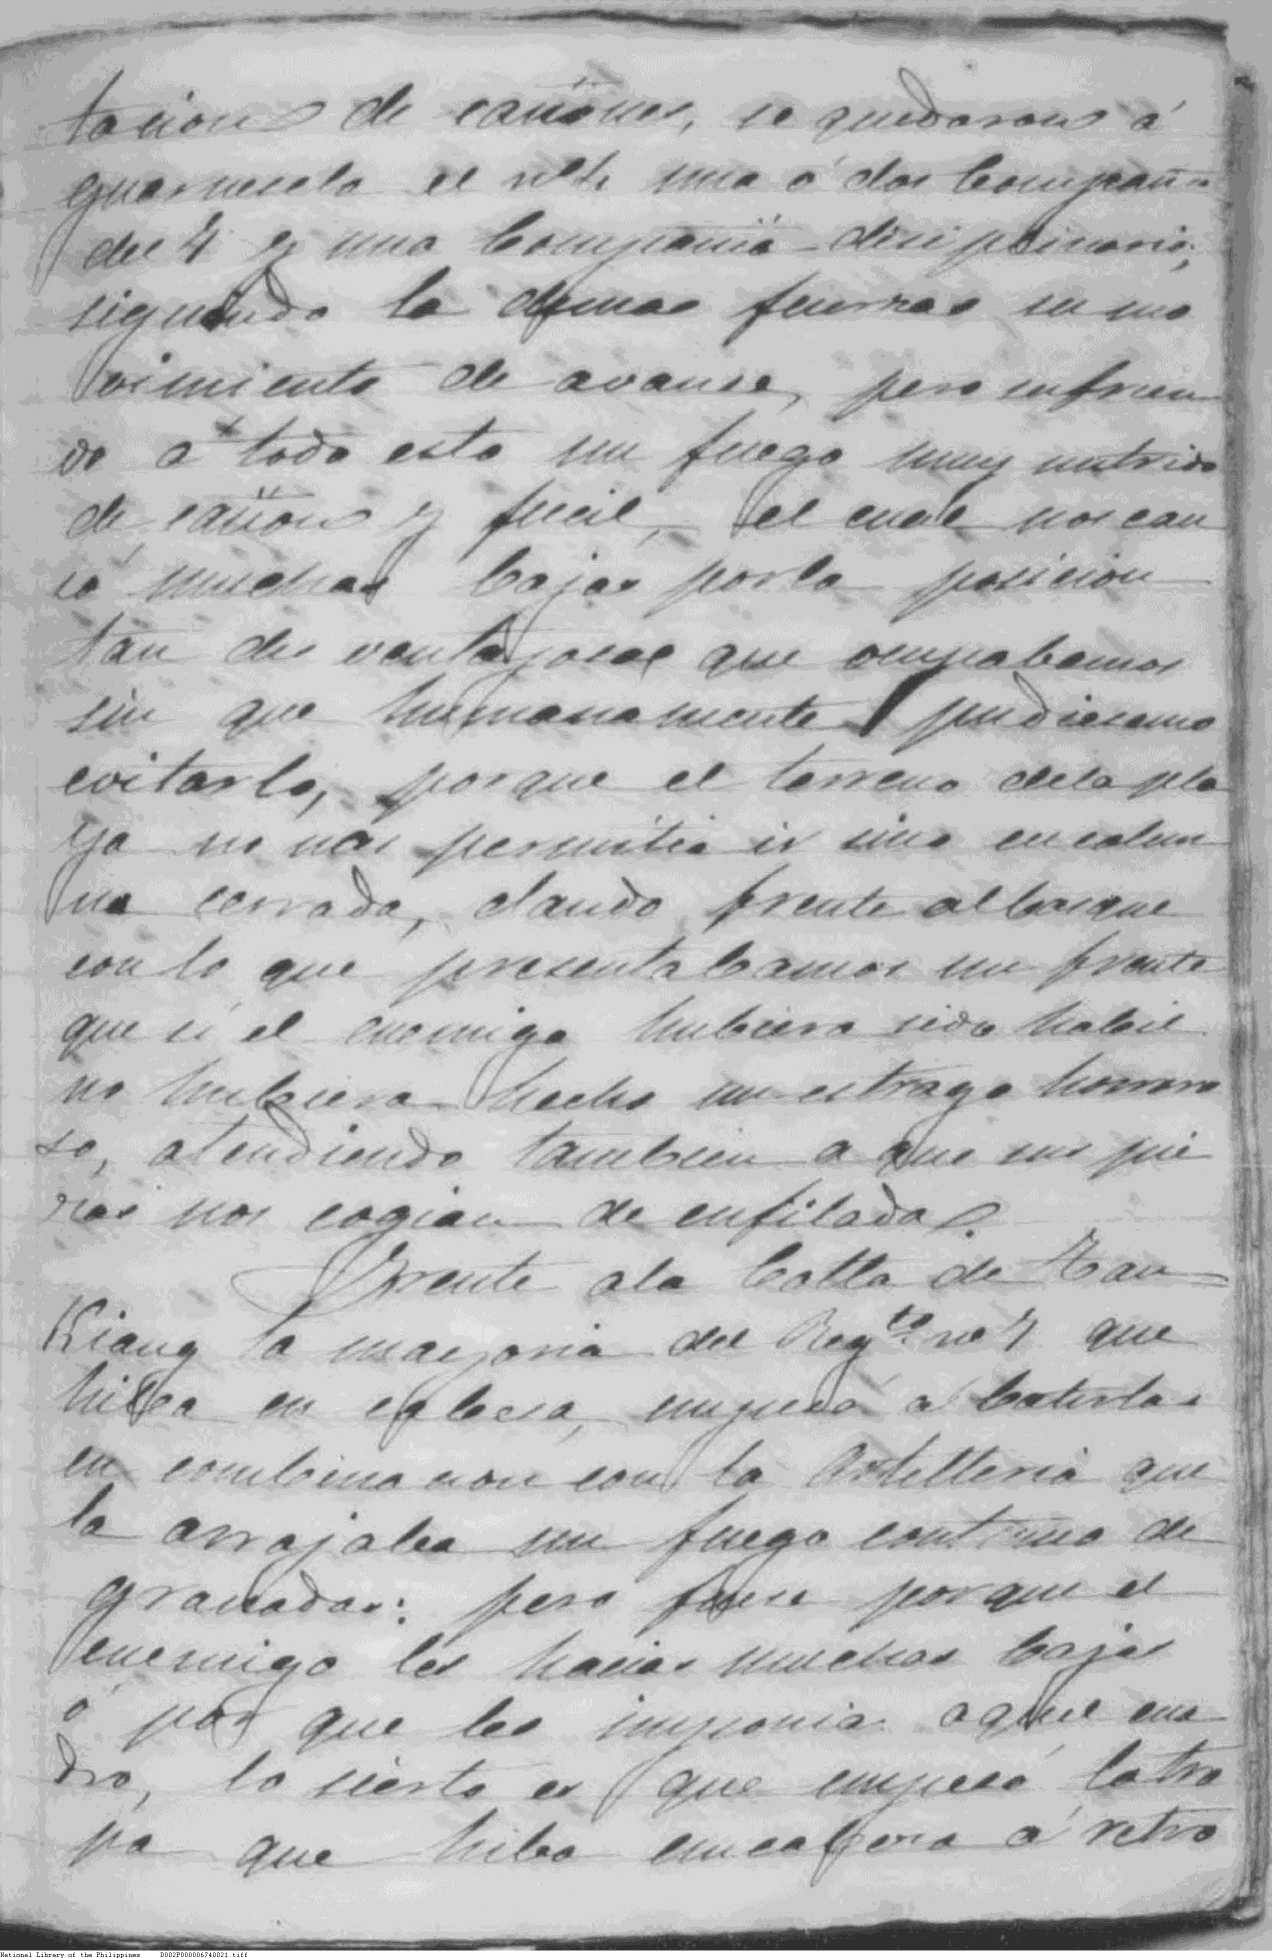 tacion de cañones, se quedaron á
guarnecela el una ó dos Compañ.s
del 4 y una Compañia disiplinaria,
siguiendo la demas fuerzas su mo
vimiento de avanse, pero sufrien
do á todo esto un fuego muy nutrido
de cañon y fucil, el cual nos cau
só muchas bajas por la posicion
tan des ventajosa que ocupabamos
sin que humanamente pudiesemo
evitarlo, porque el terreno de la pla
ya no nos permitia ir sino en colum
na cerrada, dando frente al bosque
con lo que presentabamos un frente
que si el enemigo hubiera sido habil
no hubiera hecho un estrago horroro
so, atendiendo tambien a que sus pie
zas nos cogian de enfilada.
Frente a la Cotta de Tan-
Kiang la mayoria del Reg.to nº 4 que
hiba en cabesa, empesó á batirlas
en combinacion con la Artilleria que
la arrojaba un fuego continuo de
granadas: pero fuese porque el
enemigo les hacia muchas bajas
ó por que les imponia aquel cua
dro, lo sierto es que empesó la tro
pa que hiba en cabesa á retro
National Library of the Philippines D002P000006740021.tiff